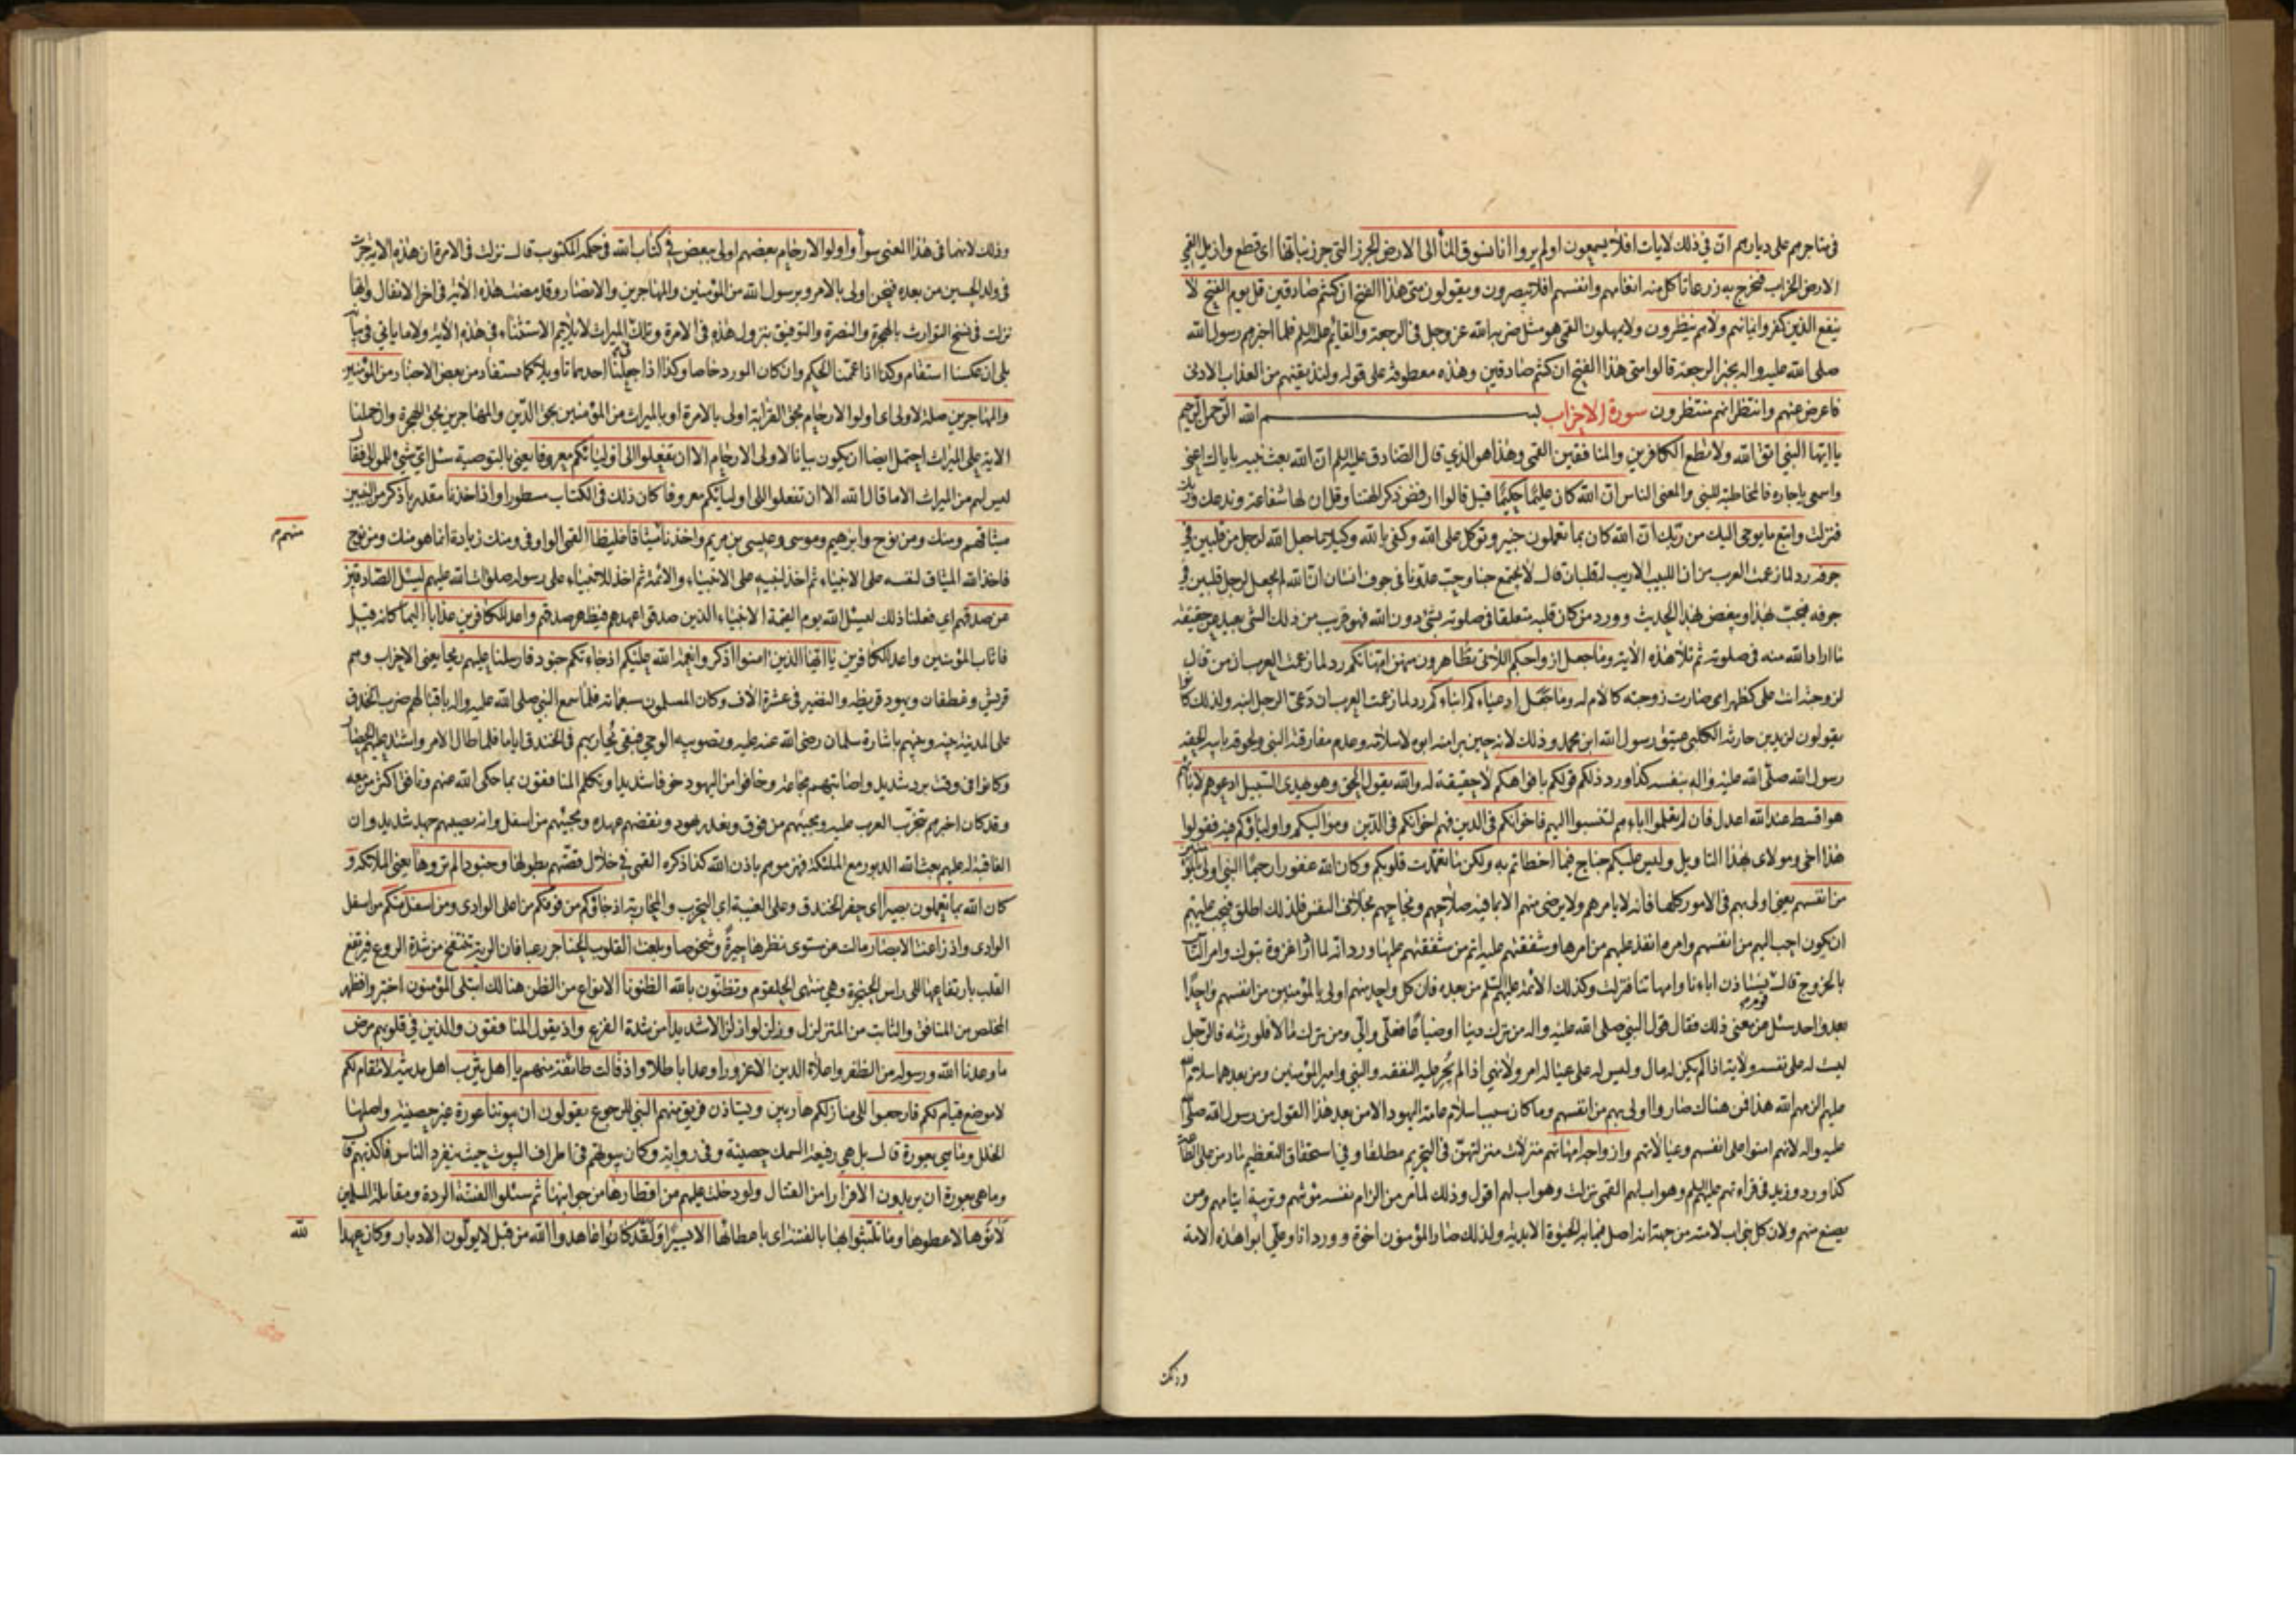 في متاجرهم على ديارهم ان في ذلك لايات افلا يسمعون اولم يروا انا نسوق الماء الى الارض الجرز التي جرز نباتها اي قطع وازيل القمي
الارض الخراب فنخرج به زرعا تاكل منه انعامهم وانفسهم افلا يبصرون ويقولون متى هذا الفتح ان كنتم صادقين قل يوم الفتح لا
ينفع الذين كفروا ايمانهم ولا هم ينظرون ولا يمهلون القمي هو مثل ضربه الله عز وجل في الرجعة والقائم عليه السلم فلما اخبرهم رسول الله
صلى الله عليه واله بخبر الرجعة قالوا متى هذا الفتح ان كنتم صادقين وهذه معطوفة على قوله ولنذيقنهم من العذاب الادنى
فاعرض عنهم وانتظر انهم منتظرون سورة الاحزاب بسم الله الرحمن الرحيم
يا ايها النبي اتق الله ولا تطع الكافرين والمنافقين القمي وهذا هو الذي قال الصادق عليه السلم ان الله بعث نبيه باياك اعني
واسمعي يا جاره فالمخاطبة للنبي والمعنى الناس ان الله كان عليما حكيما قيل قالوا ارفض ذكر الهتنا وقل ان لها شفاعة وندعك وربك
فنزلت واتبع ما يوحى اليك من ربك ان الله كان بما تعملون خبيرا وتوكل على الله وكفى بالله وكيلا ما جعل الله لرجل من قلبين في
جوفه رد لما زعمت العرب من ان اللبيب الاريب له قلبان قال لا يجتمع حبنا وحب عدونا في جوف انسان ان الله لم يجعل لرجل قلبين في
جوفه فيحب بهذا ويبغض بهذا الحديث وورد من كان قلبه متعلقا في صلوته بشئ دون الله فهو قريب من ذلك الشئ بعيد عن حقيقة
ما اراد الله منه في صلوته ثم تلا هذه الاية وما جعل ازواجكم اللائي تظاهرون منهن امهاتكم رد لما زعمت العرب ان من قال
لزوجته انت علي كظهر امي صارت زوجته كالام له وما جعل ادعياءكم ابناءكم رد لما زعمت العرب ان دعي الرجل ابنه ولذلك كانوا
يقولون لزيد بن حارثة الكلبي عتيق رسول الله ابن محمد وذلك لانه حين برا منه ابوه لاسلامه وعدم مفارقة النبي ولحوقه بابيه الحقه
رسول الله صلى الله عليه واله بنفسه كذا ورد ذلكم قولكم بافواهكم لا حقيقة له والله يقول الحق وهو يهدي السبيل ادعوهم لابائهم
هو اقسط عند الله اعدل فان لم تعلموا اباءهم لتنسبوا اليهم فاخوانكم في الدين فهم اخوانكم في الدين ومواليكم واولياؤكم فيه فقولوا
هذا اخي ومولاي بهذا التاويل وليس عليكم جناح فيما اخطاتم به ولكن ما تعمدت قلوبكم وكان الله غفورا رحيما النبي اولى بالمؤمنين
من انفسهم يعني اولى بهم في الامور كلها فانه لا يامرهم ولا يرضى منهم الا بما فيه صلاحهم ونجاحهم بخلاف النفس فلذلك اطلق فيجب عليهم
ان يكون احب اليهم من انفسهم وامره انفذ عليهم من امرها وشفقتهم عليه اتم من شفقتهم عليها ورد انه لما اراد غزوة تبوك وامر الناس
بالخروج قالت نستاذن اباءنا وامهاتنا فنزلت وكذلك الائمة عليهم السلم من بعده فان كل واحد منهم اولى بالمؤمنين من انفسهم واحدا
بعد واحد سئل عن معنى ذلك فقال قول النبي صلى الله عليه واله من ترك دينا او ضياعا فعلي والي ومن ترك مالا فلورثته فالرجل
ليست له على نفسه ولاية اذا لم يكن له مال وليس له على عياله امر ولا نهي اذا لم يجر عليهم النفقة والنبي وامير المؤمنين ومن بعدهما سلام الله
عليهم الزمهم الله هذا فمن هناك صاروا اولى بهم من انفسهم وما كان سبب اسلام عامة اليهود الا من بعد هذا القول من رسول الله صلى
عليه واله لانهم امنوا على انفسهم وعيالاتهم وازواجه امهاتهم منزلات منزلتهن في التحريم مطلقا وفي استحقاق التعظيم ما دمن على الطاعة
كذا ورد وزيد في قراءتهم عليهم السلم وهو اب لهم القمي نزلت وهو اب لهم اقول وذلك لما مر من الزام نفسه مؤنتهم وتربية ايتامهم ومن
يضيع منهم ولان كل نبي اب لامته من جهة انه اصل فيما به الحيوة الابدية ولذلك صار المؤمنون اخوة وورد انا وعلي ابوا هذه الامة
وذلك
وذلك لانهما في هذا المعنى سواء واولوا الارحام بعضهم اولى ببعض في كتاب الله في حكمه المكتوب قال نزلت في الامرة ان هذه الاية جرت
في ولد الحسين من بعده فنحن اولى بالامر وبرسول الله من المؤمنين والمهاجرين والانصار وقد مضت هذه الاية في اخر الانفال وانها
نزلت في نسخ التوارث بالهجرة والنصرة والتوفيق بنزول هذه في الامرة وتلك في الميراث لا يلائم الاستثناء في هذه الاية ولا ما ياتي في بيا
بلى ان عكسنا استقام وكذا اذا عممنا الحكم وان كان المورد خاصا وكذا اذا جعلنا احدهما تاويلا كما يستفاد من بعض الاخبار من المؤمنين
والمهاجرين صلة لاولى اي اولوا الارحام بحق القرابة اولى بالامرة او بالميراث من المؤمنين بحق الدين والمهاجرين بحق الهجرة وان حملنا
الاية على الميراث احتمل ايضا ان يكون بيانا لاولى الارحام الا ان تفعلوا الى اوليائكم معروفا يعني بالتوصية سئل اي شئ للموالي فقال
ليس لهم من الميراث الا ما قال الله الا ان تفعلوا الى اوليائكم معروفا كان ذلك في الكتاب مسطورا واذ اخذنا مقدر باذكر من النبيين
منهم م
ميثاقهم ومنك ومن نوح وابرهيم وموسى وعيسى بن مريم واخذنا ميثاقا غليظا القمي الواو في ومنك زيادة انما هو منك ومن نوح
فاخذ الله الميثاق لنفسه على الانبياء ثم اخذ لنبيه على الانبياء والائمة ثم اخذ للانبياء على رسوله صلوات الله عليهم ليسئل الصادقين
عن صدقهم اي فعلنا ذلك ليسئل الله يوم القيمة الانبياء الذين صدقوا عهدهم فيظهر صدقهم واعد للكافرين عذابا اليما كانه قيل
فاثاب المؤمنين واعد للكافرين يا ايها الذين امنوا اذكروا نعمة الله عليكم اذ جاءتكم جنود فارسلنا عليهم ريحا يعني الاحزاب وهم
قريش وغطفان ويهود قريظه والنضير في عشرة الاف وكان المسلمون سبعمائة فلما سمع النبي صلى الله عليه واله باقبالهم ضرب الخندق
على المدينة بينه وبينهم باشارة سلمان رضي الله عنه عليه وتصويبه الوحي فبقي يحاربهم في الخندق اياما فلما طال الامر واشتد عليهم الحصار
وكانوا في وقت برد شديد واصابتهم مجاعة وخافوا من اليهود خوفا شديدا وتكلم المنافقون بما حكى الله عنهم ونافق اكثر من معه
وقد كان اخبرهم بتحزب العرب عليه ومجيئهم من فوق وبغدر يهود ونقضهم عهده ومجيئهم من اسفل وانه يصيبهم جهد شديد وان
العاقبة له عليهم بعث الله الدبور مع الملئكة فهزموهم باذن الله كذا ذكره القمي في خلال قصتهم بطولها وجنودا لم تروها يعني الملائكة و
كان الله بما تعملون بصيرا اي حفر الخندق وعلى الغيبة اي التحزب والمحاربة اذ جاؤكم من فوقكم من اعلى الوادي ومن اسفل منكم من اسفل
الوادي واذ زاغت الابصار مالت عن مستوى نظرها حيرة وشخوصا وبلغت القلوب الحناجر رعبا فان الرية تنتفخ من شدة الروع فيرتفع
القلب بارتفاعها الى راس الحنجرة وهي منتهى الحلقوم وتظنون بالله الظنونا الانواع من الظن هنالك ابتلي المؤمنون اختبروا فظهر
المخلص من المنافق والثابت من المتزلزل وزلزلوا زلزالا شديدا من شدة الفزع واذ يقول المنافقون والذين في قلوبهم مرض
ما وعدنا الله ورسوله من الظفر واعلاء الدين الا غرورا وعدا باطلا واذ قالت طائفة منهم يا اهل يثرب اهل مدينة لا مقام لكم
لا موضع قيام لكم فارجعوا الى منازلكم هاربين ويستاذن فريق منهم النبي للرجوع يقولون ان بيوتنا عورة غير حصينة واصلها
الخلل وما هي بعورة قال بل هي رفيعة السمك حصينة وفي رواية وكان بيوتهم في اطراف البيوت حيث ينفرد الناس فاكذبهم قال
وما هي بعورة ان يريدون الا فرارا من القتال ولو دخلت عليهم من اقطارها من جوانبها ثم سئلوا الفتنة الردة ومقاتلة المسلمين
لاتوها لاعطوها وما تلبثوا بها بالفتنة اي باعطائها الا يسيرا ولقد كانوا عاهدوا الله من قبل لا يولون الادبار وكان عهد الله